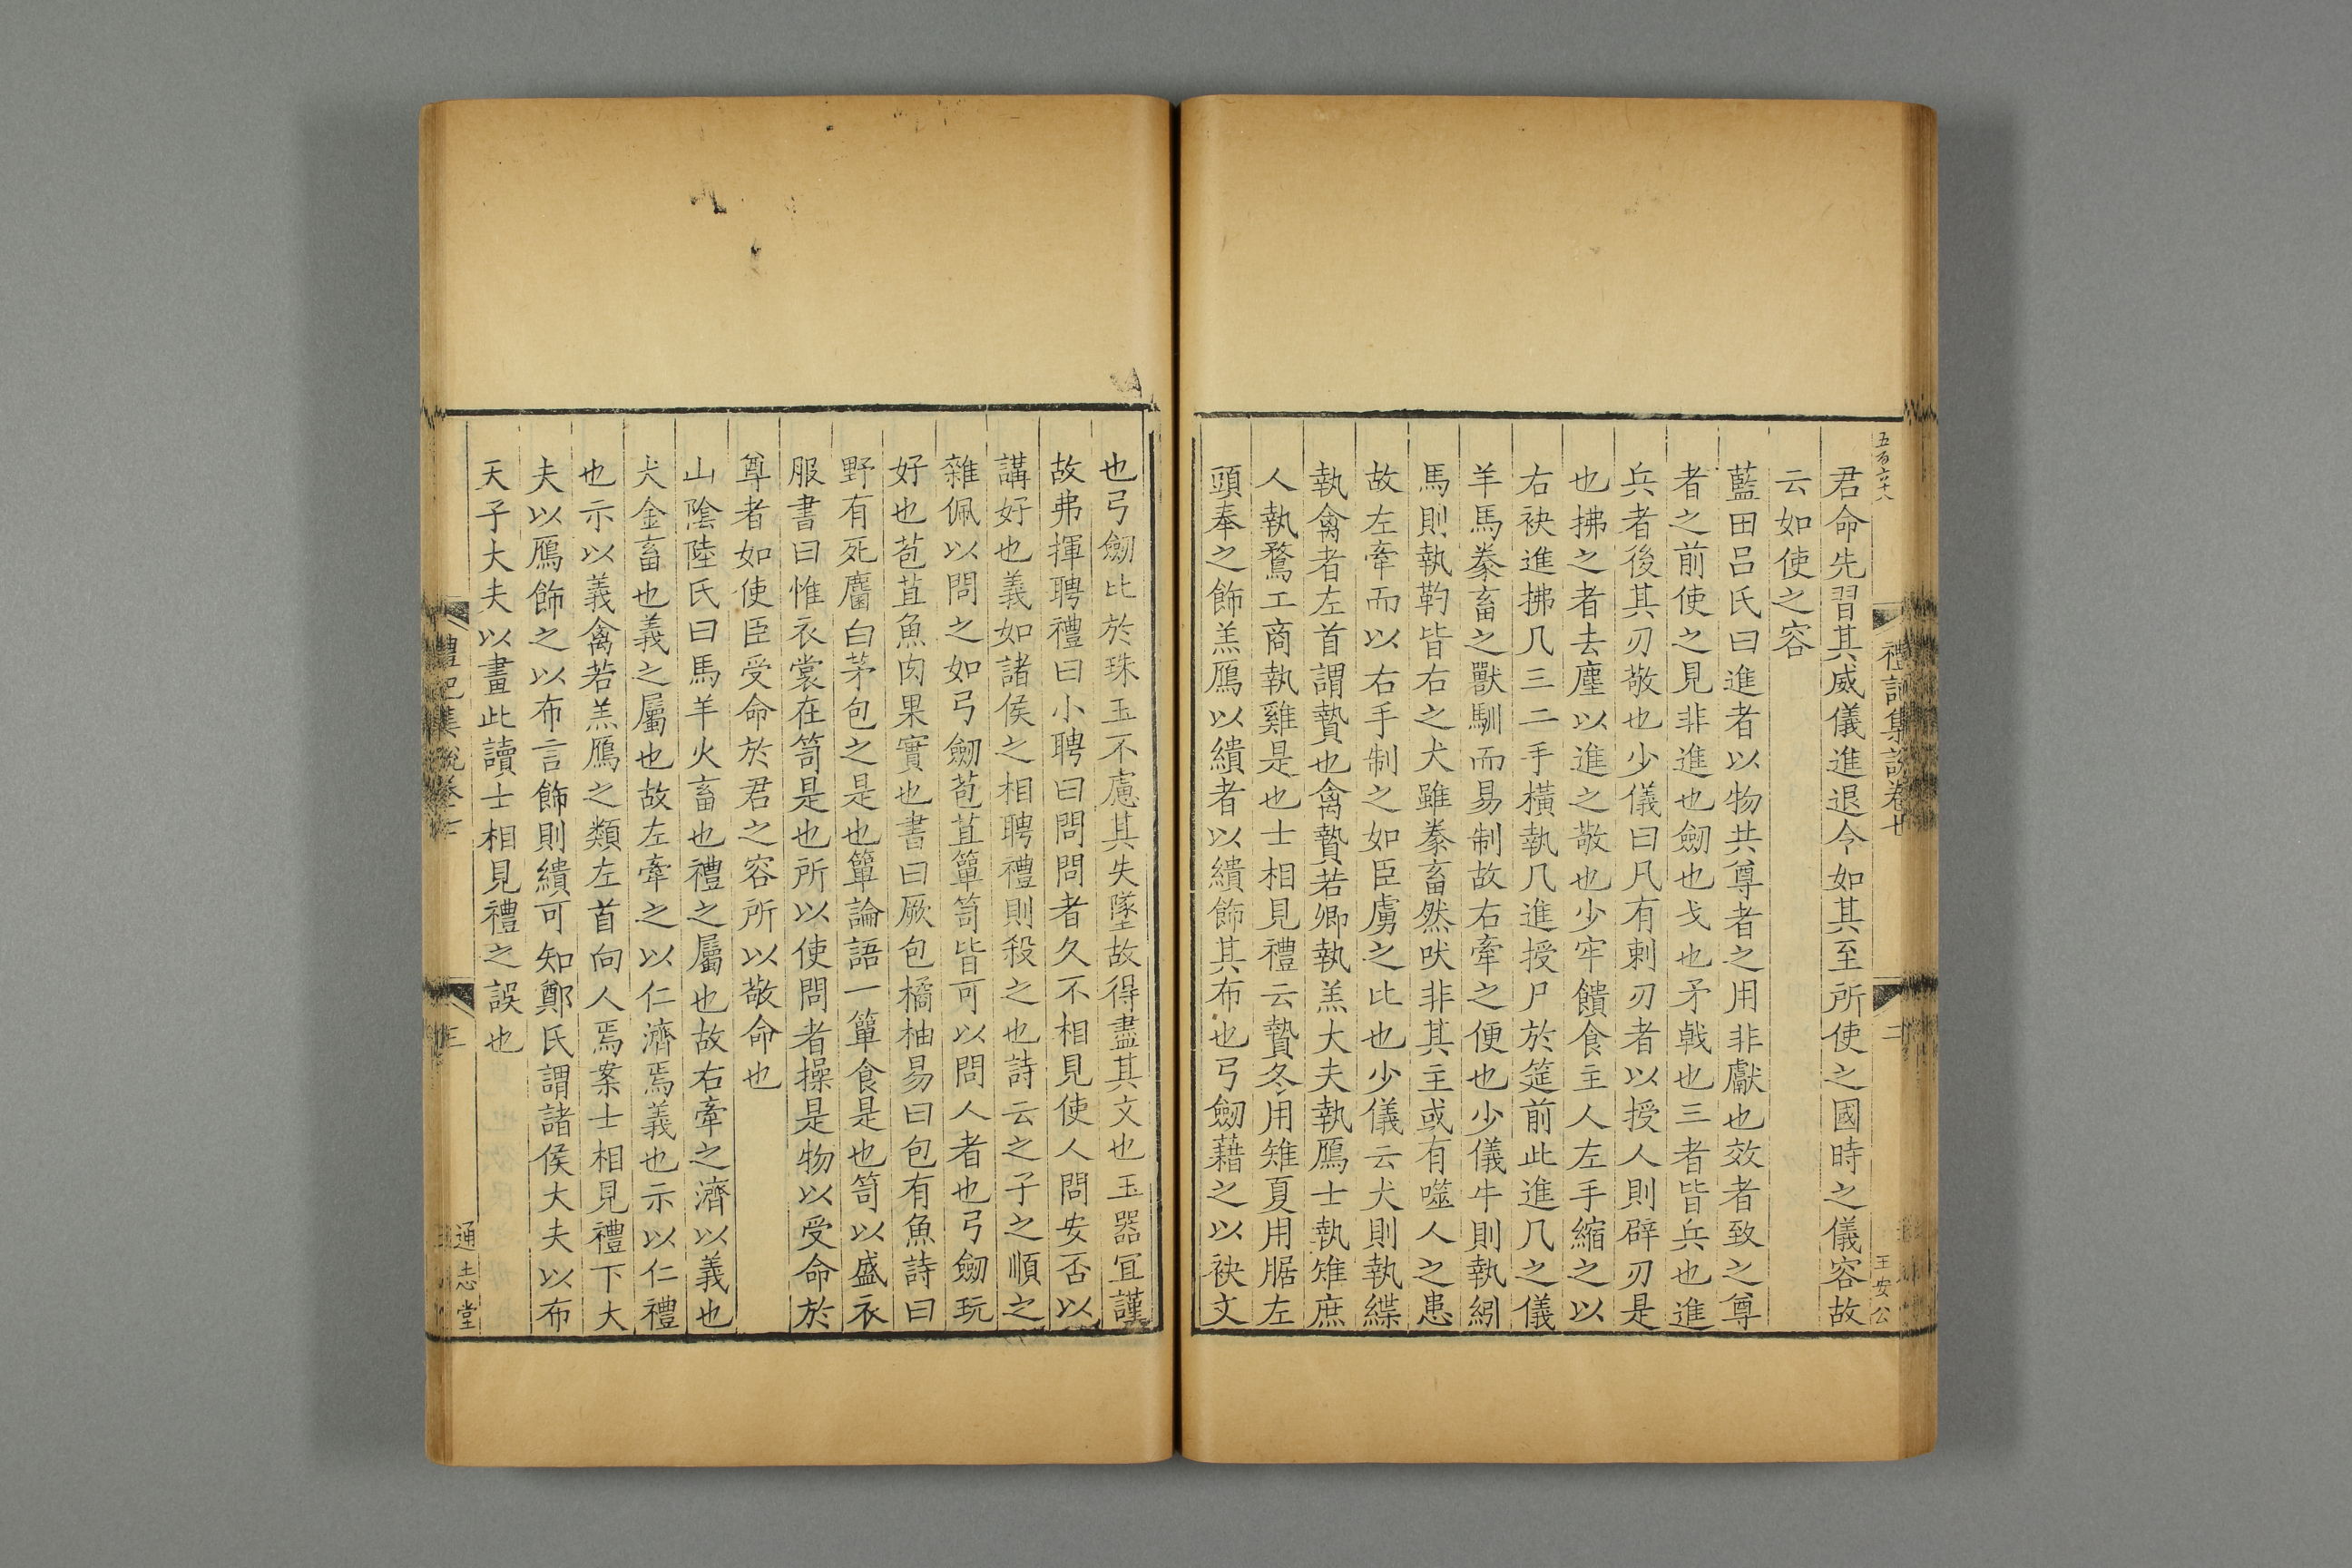 五百六十八
禮記集說卷七
二
王安公
君命先習其威儀進退令如其至所使之國時之儀容故
云如使之容
藍田呂氏曰進者以物共尊者之用非獻也效者致之尊
者之前使之見非進也劒也戈也矛戟也三者皆兵也進
兵者後其刃敬也少儀曰凡有刺刃者以授人則辟刃是
也拂之者去塵以進之敬也少牢饋食主人左手縮之以
右袂進拂几三二手橫執几進授尸於筵前此進几之儀
羊馬豢畜之獸馴而易制故右牽之便也少儀牛則執紖
馬則執靮皆右之犬雖豢畜然吠非其主或有噬人之患
故左牽而以右手制之如臣虜之比也少儀云犬則執緤
執禽者左首謂贄也禽贄若卿執羔大夫執鴈士執雉庶
人執鶩工商執雞是也士相見禮云贄冬用雉夏用腒左
頭奉之飾羔鴈以繢者以繢飾其布也弓劒藉之以袂文
也弓劒比於珠玉不慮其失墜故得盡其文也玉器宜謹
故弗揮聘禮曰小聘曰問問者久不相見使人問安否以
講好也義如諸侯之相聘禮則殺之也詩云之子之順之
雜佩以問之如弓劒苞苴簞笥皆可以問人者也弓劒玩
好也苞苴魚肉果實也書曰厥包橘柚易曰包有魚詩曰
野有死麕白茅包之是也簞論語一簞食是也笥以盛衣
服書曰惟衣裳在笥是也所以使問者操是物以受命於
尊者如使臣受命於君之容所以敬命也
山陰陸氏曰馬羊火畜也禮之屬也故右牽之濟以義也
犬金畜也義之屬也故左牽之以仁濟焉義也示以仁禮
也示以義禽若羔鴈之類左首向人焉案士相見禮下大
夫以鴈飾之以布言飾則繢可知鄭氏謂諸侯大夫以布
天子大夫以畫此讀士相見禮之誤也
禮記集說卷七
三
通志堂